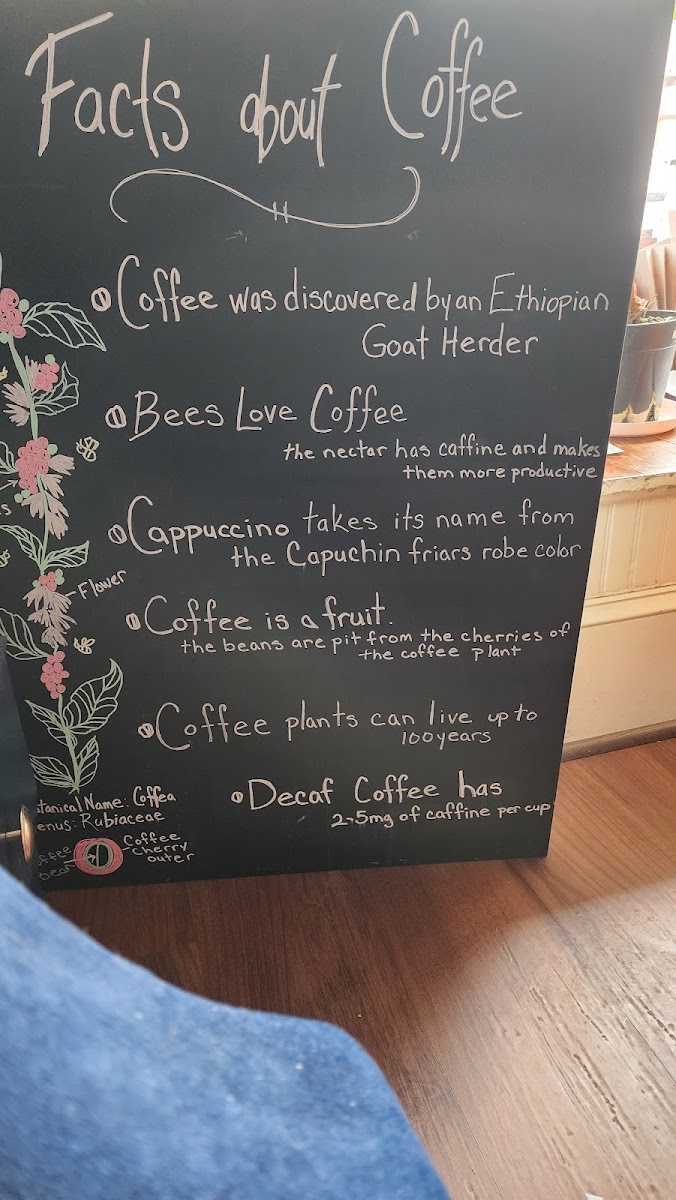 Facts about Coffee
Coffee was discovered by an Ethiopian
Goat Herder
Bees Love Coffee
the nectar has caffine and makes
them more productive
Cappuccino takes its name from
the Capuchin friars robe color
Flower
Coffee is a fruit.
the beans are pit from the cherries of
the coffee plant
Coffee plants can live up to
100 years
Decaf Coffee has
2-5mg of caffine per cup
Name: Coffea
Rubiaceae
Coffee
cherry
outer